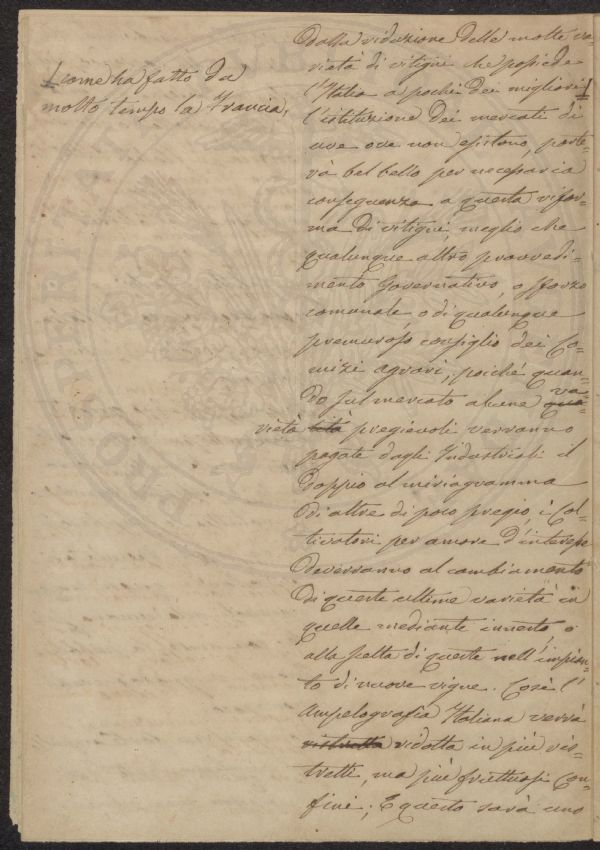 come ha fatto da
molto tempo la Francia,
dalla riduzione delle molte va-
rietà di vitigni che possiede
l'Italia a pochi dei migliori
l'istituzione dei mercati di
uve ove non esistono, porte-
rà bel bello per necessaria
conseguenza a questa rifor-
ma di vitigni, meglio che
qualunque altro provvedi-
mento Governativo, o sforzo
comunale, o di qualunque
premuroso consiglio dei Co-
mizi agrari; poiché quan-
do sul mercato alcune va-
rietà pregievoli verranno
pagate dagli Industriali il
doppio al miriagramma
di altre di poco pregio, i Col-
tivatori per amore d'interesse
deverranno al cambiamento
di queste ultime varietà in
quelle mediante innesto, o
alla scelta di queste nell'impian-
to di nuove vigne. Così l'
Ampelografia Italiana verrà
ristretta ridotta in più ris-
tretti, ma più fruttuosi con-
fini; E questo sarà uno